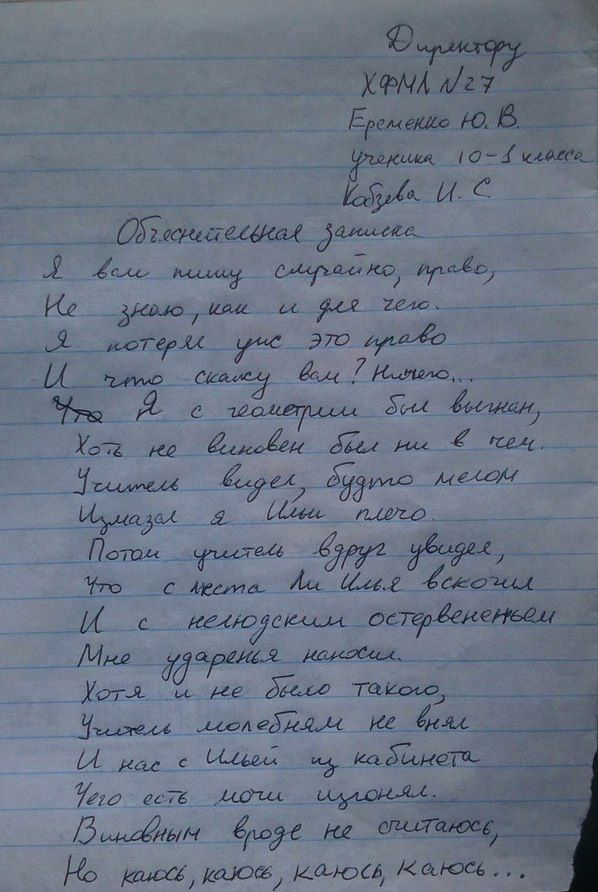 Директору
ХФМЛ №27
Еременко Ю. В.
ученика 10-1 класса
Кобзева И. С.
Объяснительная записка
Я вам пишу случайно, право,
Не знаю, как и для чего.
Я потерял уж это право
И что скажу вам? Ничего...
Что Я с геометрии был выгнан,
Хоть не виновен был ни в чем.
Учитель видел, будто мелом
Измазал я Ильи плечо.
Потом учитель вдруг увидел,
Что с места Ли Илья вскочил
И с нелюдским остервененьем
Мне ударенья наносил.
Хотя и не было такого,
Учитель молебням не внял
И нас с Ильей из кабинета
Чего есть мочи изгонял.
Виновным вроде не считаюсь,
Но каюсь, каюсь, каюсь, каюсь...